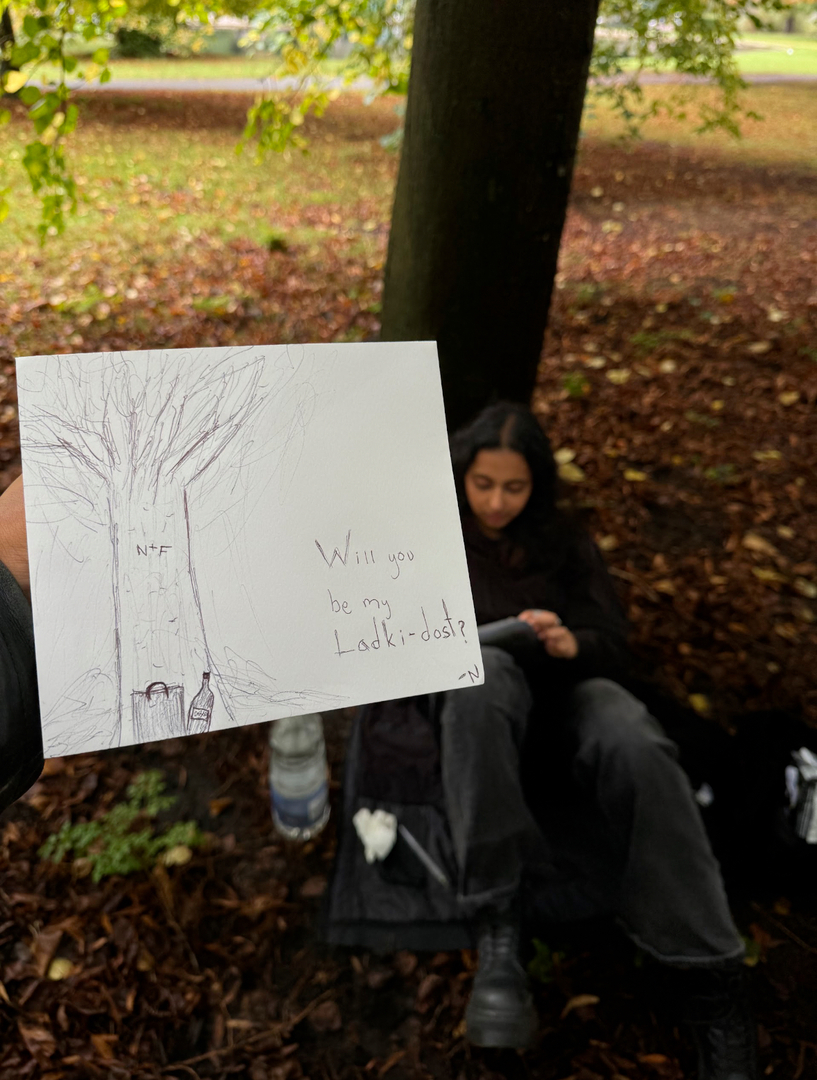 N+F
Will you
be my
Ladki-dost?
-N